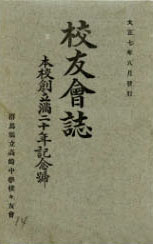 大正七年八月發行
校友會誌
本校創立滿二十年記念號
群馬縣立高崎中學校々友會
14